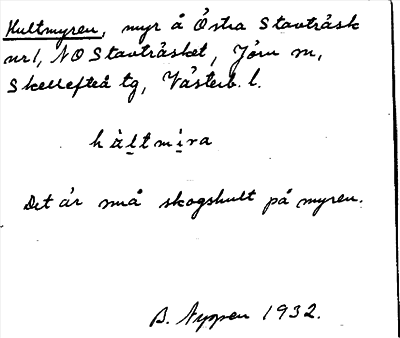 Hultmyren, myr å Östra Stavträsk
nr 1, NO Stavträsket, Jörn m,
Skellefteå tg, Västerb. l.
hàltmíra
Det är små skogshult på myren.
B. Nyppen 1932.